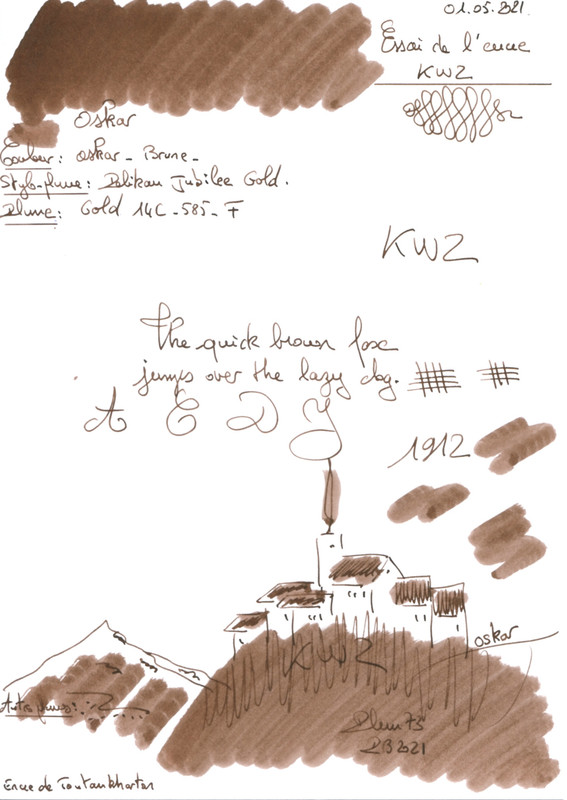 01.05.2021
Essai de l'encre
KWZ
Oskar
Couleur: Oskar - Brune -
Stylo-plume: Pelikan Jubilee Gold.
Plume: Gold 14C - 585 - F
KWZ
The quick brown fox
jumps over the lazy dog.
A E D Y
1912
oskar
KWZ
Autres plumes:
Plum75
PB2021
Encre de Toutankharton